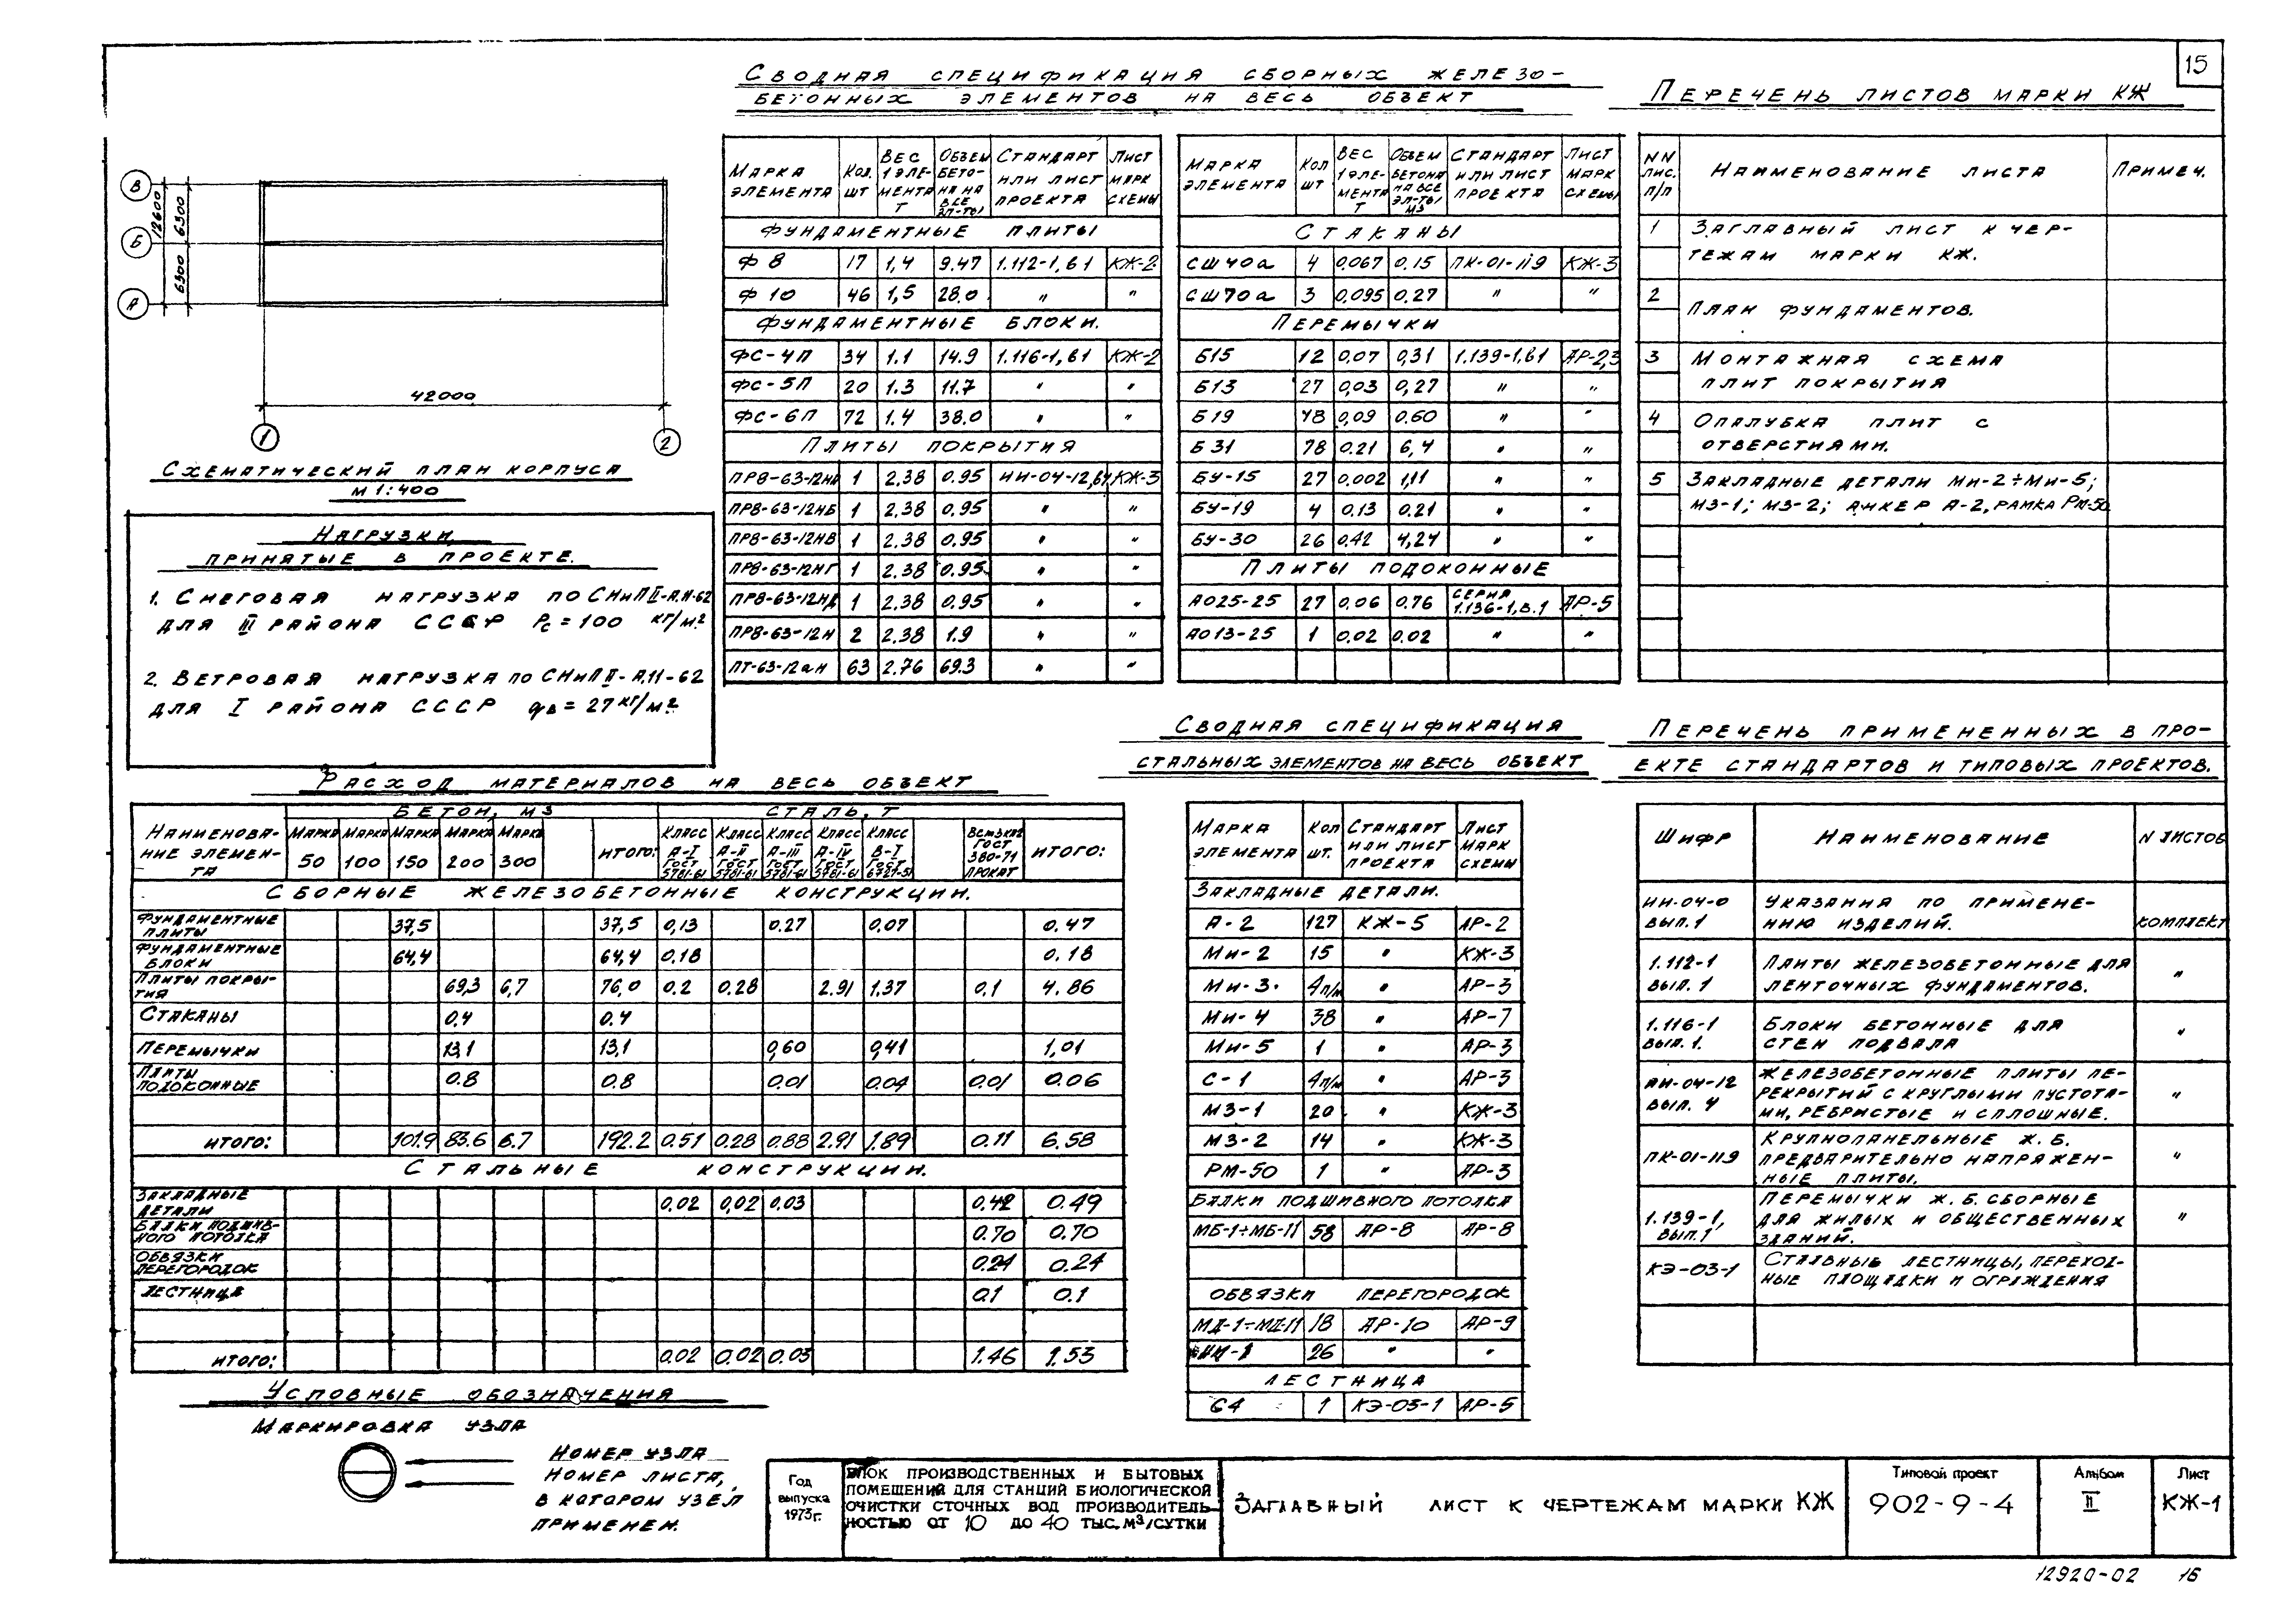 15
Сводная спецификация сборных железо-
бетонных элементов на весь объект
Перечень листов марки КЖ
В
Б
А
12600
6300
6300
42000
1
2
Схематический план корпуса
М 1:400
Нагрузки,
принятые в проекте.
1. Снеговая нагрузка по СНиП II-А.11-62
для III района СССР Pc = 100 кг/м²
2. Ветровая нагрузка по СНиП II-А.11-62
для I района СССР qв = 27 кг/м²
Марка элемента | Кол. шт | Вес 1 элемента Т | Объем бетона на все эл-ты | Стандарт или лист проекта | Лист марк схемы
Фундаментные плиты
Ф 8 17 1,4 9.47 1.112-1,в1 КЖ-2
Ф 10 46 1,5 28.0 " "
Фундаментные блоки.
ФС-4П 34 1.1 14.9 1.116-1,в1 КЖ-2
ФС-5П 20 1.3 11.7 " "
ФС-6П 72 1.4 38.0 " "
Плиты покрытия
ПР8-63-12на 1 2,38 0.95 ИИ-04-12,в4 КЖ-3
ПР8-63-12нб 1 2.38 0.95 " "
ПР8-63-12нв 1 2.38 0.95 " "
ПР8-63-12нг 1 2.38 0.95 " "
ПР8-63-12нд 1 2.38 0.95 " "
ПР8-63-12н 2 2.38 1.9 " "
ПТ-63-12ан 63 2.76 69.3 " "
Марка элемента | Кол шт | Вес 1 элемента Т | Объем бетона на все эл-ты м3 | Стандарт или лист проекта | Лист марк схемы
Стаканы
СШ40а 4 0.067 0.15 ПК-01-119 КЖ-3
СШ70а 3 0.095 0.27 " "
Перемычки
Б15 12 0,07 0,31 1.139-1,в1 АР-2,3
Б13 27 0,03 0,27 " "
Б19 48 0,09 0.60 " "
Б31 78 0.21 6,4 " "
БУ-15 27 0,002 1,11 " "
БУ-19 4 0.13 0.21 " "
БУ-30 26 0.42 4,24 " "
Плиты подоконные
АО25-25 27 0,06 0,76 серия 1.136-1,в.1 АР-5
АО13-25 1 0.02 0.02 " "
NN лис. п/п | Наименование листа | Примеч.
1 Заглавный лист к чер-
тежам марки КЖ.
2 План фундаментов.
3 Монтажная схема
плит покрытия
4 Опалубка плит с
отверстиями.
5 Закладные детали Ми-2÷Ми-5;
МЗ-1; МЗ-2; анкер А-2, рамка Рм-50
Расход материалов на весь объект
Наименование элемента | Бетон, м3 | Сталь, Т
Марка 50 | Марка 100 | Марка 150 | Марка 200 | Марка 300 | Итого: | Класс А-I ГОСТ 5781-61 | Класс А-II ГОСТ 5781-61 | Класс А-III ГОСТ 5781-61 | Класс А-IV ГОСТ 5781-61 | Класс В-I ГОСТ 6727-51 | ГОСТ 380-71 прокат | Итого:
Сборные железобетонные конструкции.
Фундаментные плиты 37,5 37,5 0,13 0.27 0.07 0.47
Фундаментные блоки 64,4 64,4 0.18 0.18
Плиты покрытия 69,3 6,7 76,0 0.2 0.28 2.91 1.37 0.1 4.86
Стаканы 0.4 0.4
Перемычки 13,1 13,1 0,60 0,41 1,01
Плиты подоконные 0.8 0.8 0.01 0.04 0.01 0.06
Итого: 101.9 83.6 6.7 192.2 0.51 0.28 0.88 2.91 1.89 0.11 6.58
Стальные конструкции.
Закладные детали 0.02 0,02 0.03 0.42 0.49
Балки подшивного потолка 0.70 0.70
Обвязки перегородок 0.24 0.24
Лестница 0.1 0.1
Итого: 0.02 0.02 0.03 1.46 1.53
Сводная спецификация
стальных элементов на весь объект
Марка элемента | Кол шт. | Стандарт или лист проекта | Лист марк схемы
Закладные детали.
А-2 127 КЖ-5 АР-2
Ми-2 15 " КЖ-3
Ми-3 4п/м " АР-3
Ми-4 38 " АР-7
Ми-5 1 " АР-3
С-1 4п/м " АР-3
МЗ-1 20 " КЖ-3
МЗ-2 14 " КЖ-3
РМ-50 1 " АР-3
Балки подшивного потолка
МБ-1÷МБ-11 58 АР-8 АР-8
Обвязки перегородок
МД-1÷МД-11 18 АР-10 АР-9
26 " "
Лестница
С4 1 КЭ-03-1 АР-5
Перечень примененных в про-
екте стандартов и типовых проектов.
Шифр | Наименование | N листов
ИИ-04-0 вып.1 Указания по примене-
нию изделий. комплект
1.112-1 вып. 1 Плиты железобетонные для
ленточных фундаментов. "
1.116-1 вып. 1. Блоки бетонные для
стен подвала "
ИИ-04-12 вып. 4 Железобетонные плиты пе-
рекрытий с круглыми пустота-
ми, ребристые и сплошные. "
ПК-01-119 Крупнопанельные ж.б.
предварительно напряжен-
ные плиты. "
1.139-1, вып.1 Перемычки ж.б. сборные
для жилых и общественных
зданий. "
КЭ-03-1 Стальные лестницы, переход-
ные площадки и ограждения
Условные обозначения
Маркировка узла
Номер узла
Номер листа,
в котором узел
применен.
Год
выпуска
1973г.
Блок производственных и бытовых
помещений для станций биологической
очистки сточных вод производитель-
ностью от 10 до 40 тыс. м³/сутки
Заглавный лист к чертежам марки КЖ
Типовой проект
902-9-4
Альбом
II
Лист
КЖ-1
12920-02 16